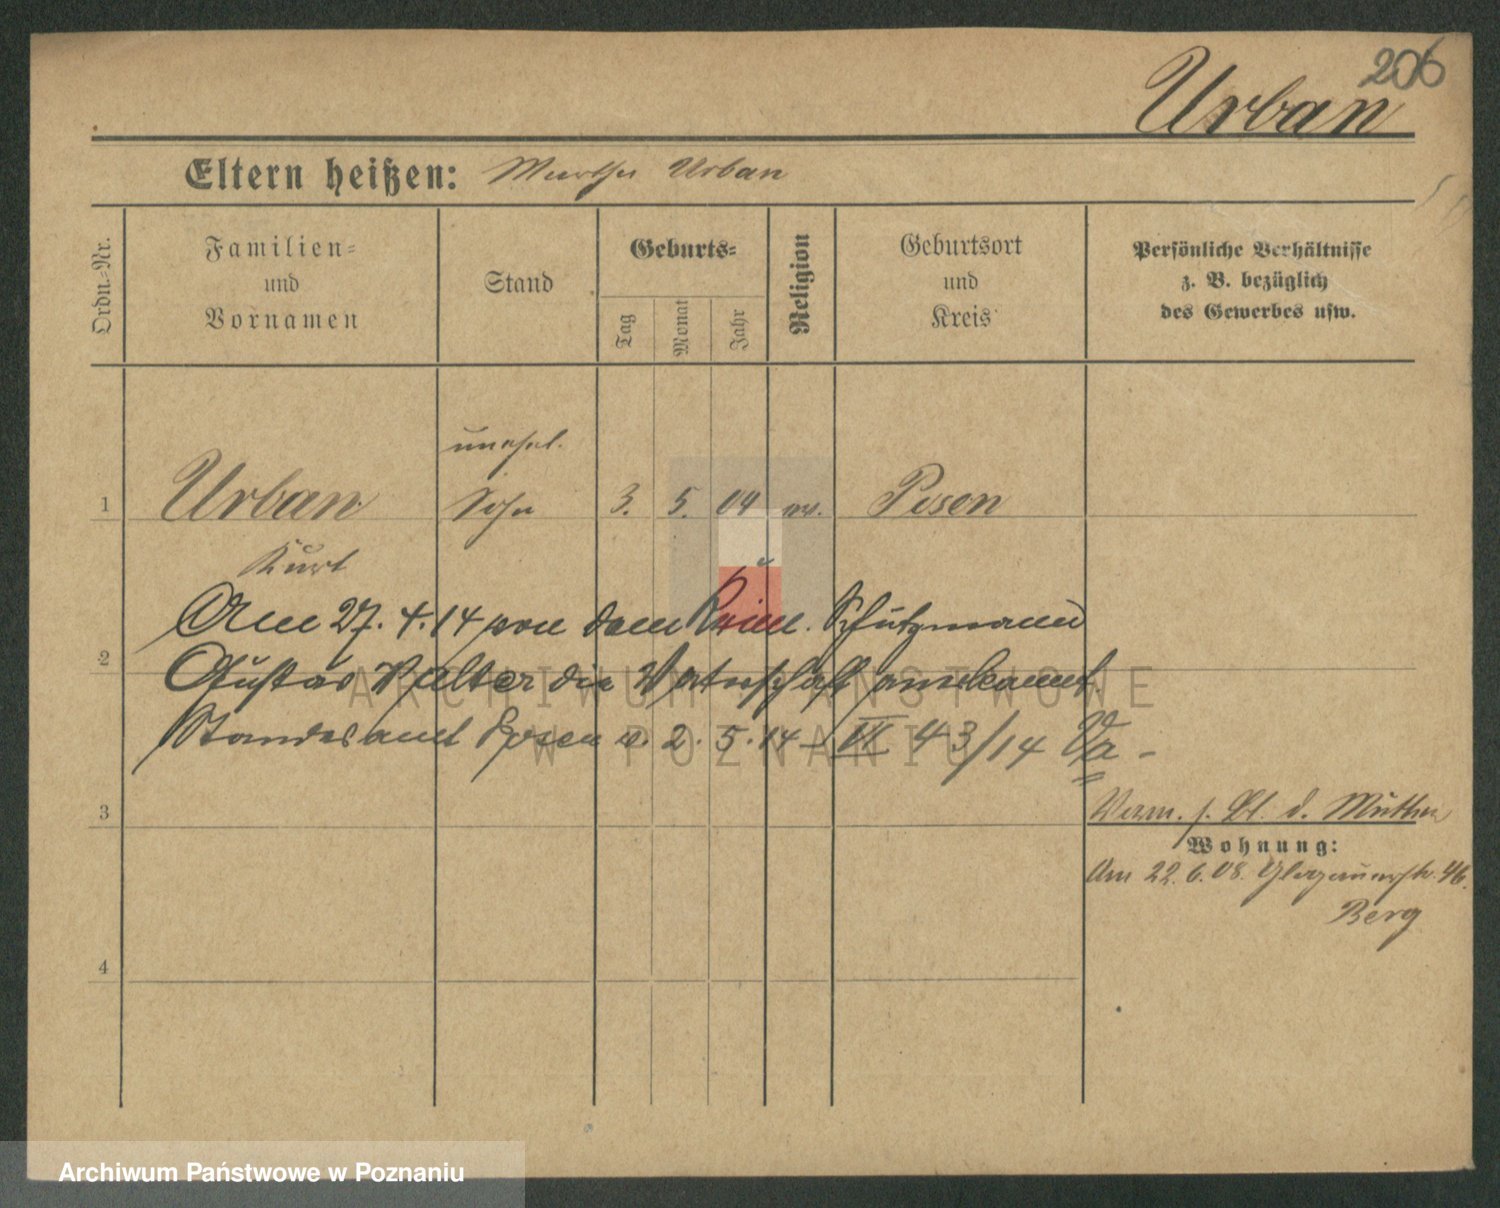 206
Urban
Eltern heißen: Martha Urban
Ordn.-Nr.
Familien-
und
Vornamen
Stand
Geburts-
Tag
Monat
Jahr
Religion
Geburtsort
und
Kreis
Persönliche Verhältnisse
z. B. bezüglich
des Gewerbes usw.
unehel.
1 Urban Sohn 3. 5. 04 ev. Posen
Kurt
Am 27. 4. 14 von dem Krim. Schutzmann
2
Gustav Walter die Vaterschaft anerkannt
Standesamt Posen v. 2. 5. 14 – VI 43/14 Va –
3
Verm. s. Bl. d. Mutter
Wohnung:
Am 22. 6. 08. Glogauerstr. 46.
Berg
4
ARCHIWUM PAŃSTWOWE
W POZNANIU
Archiwum Państwowe w Poznaniu